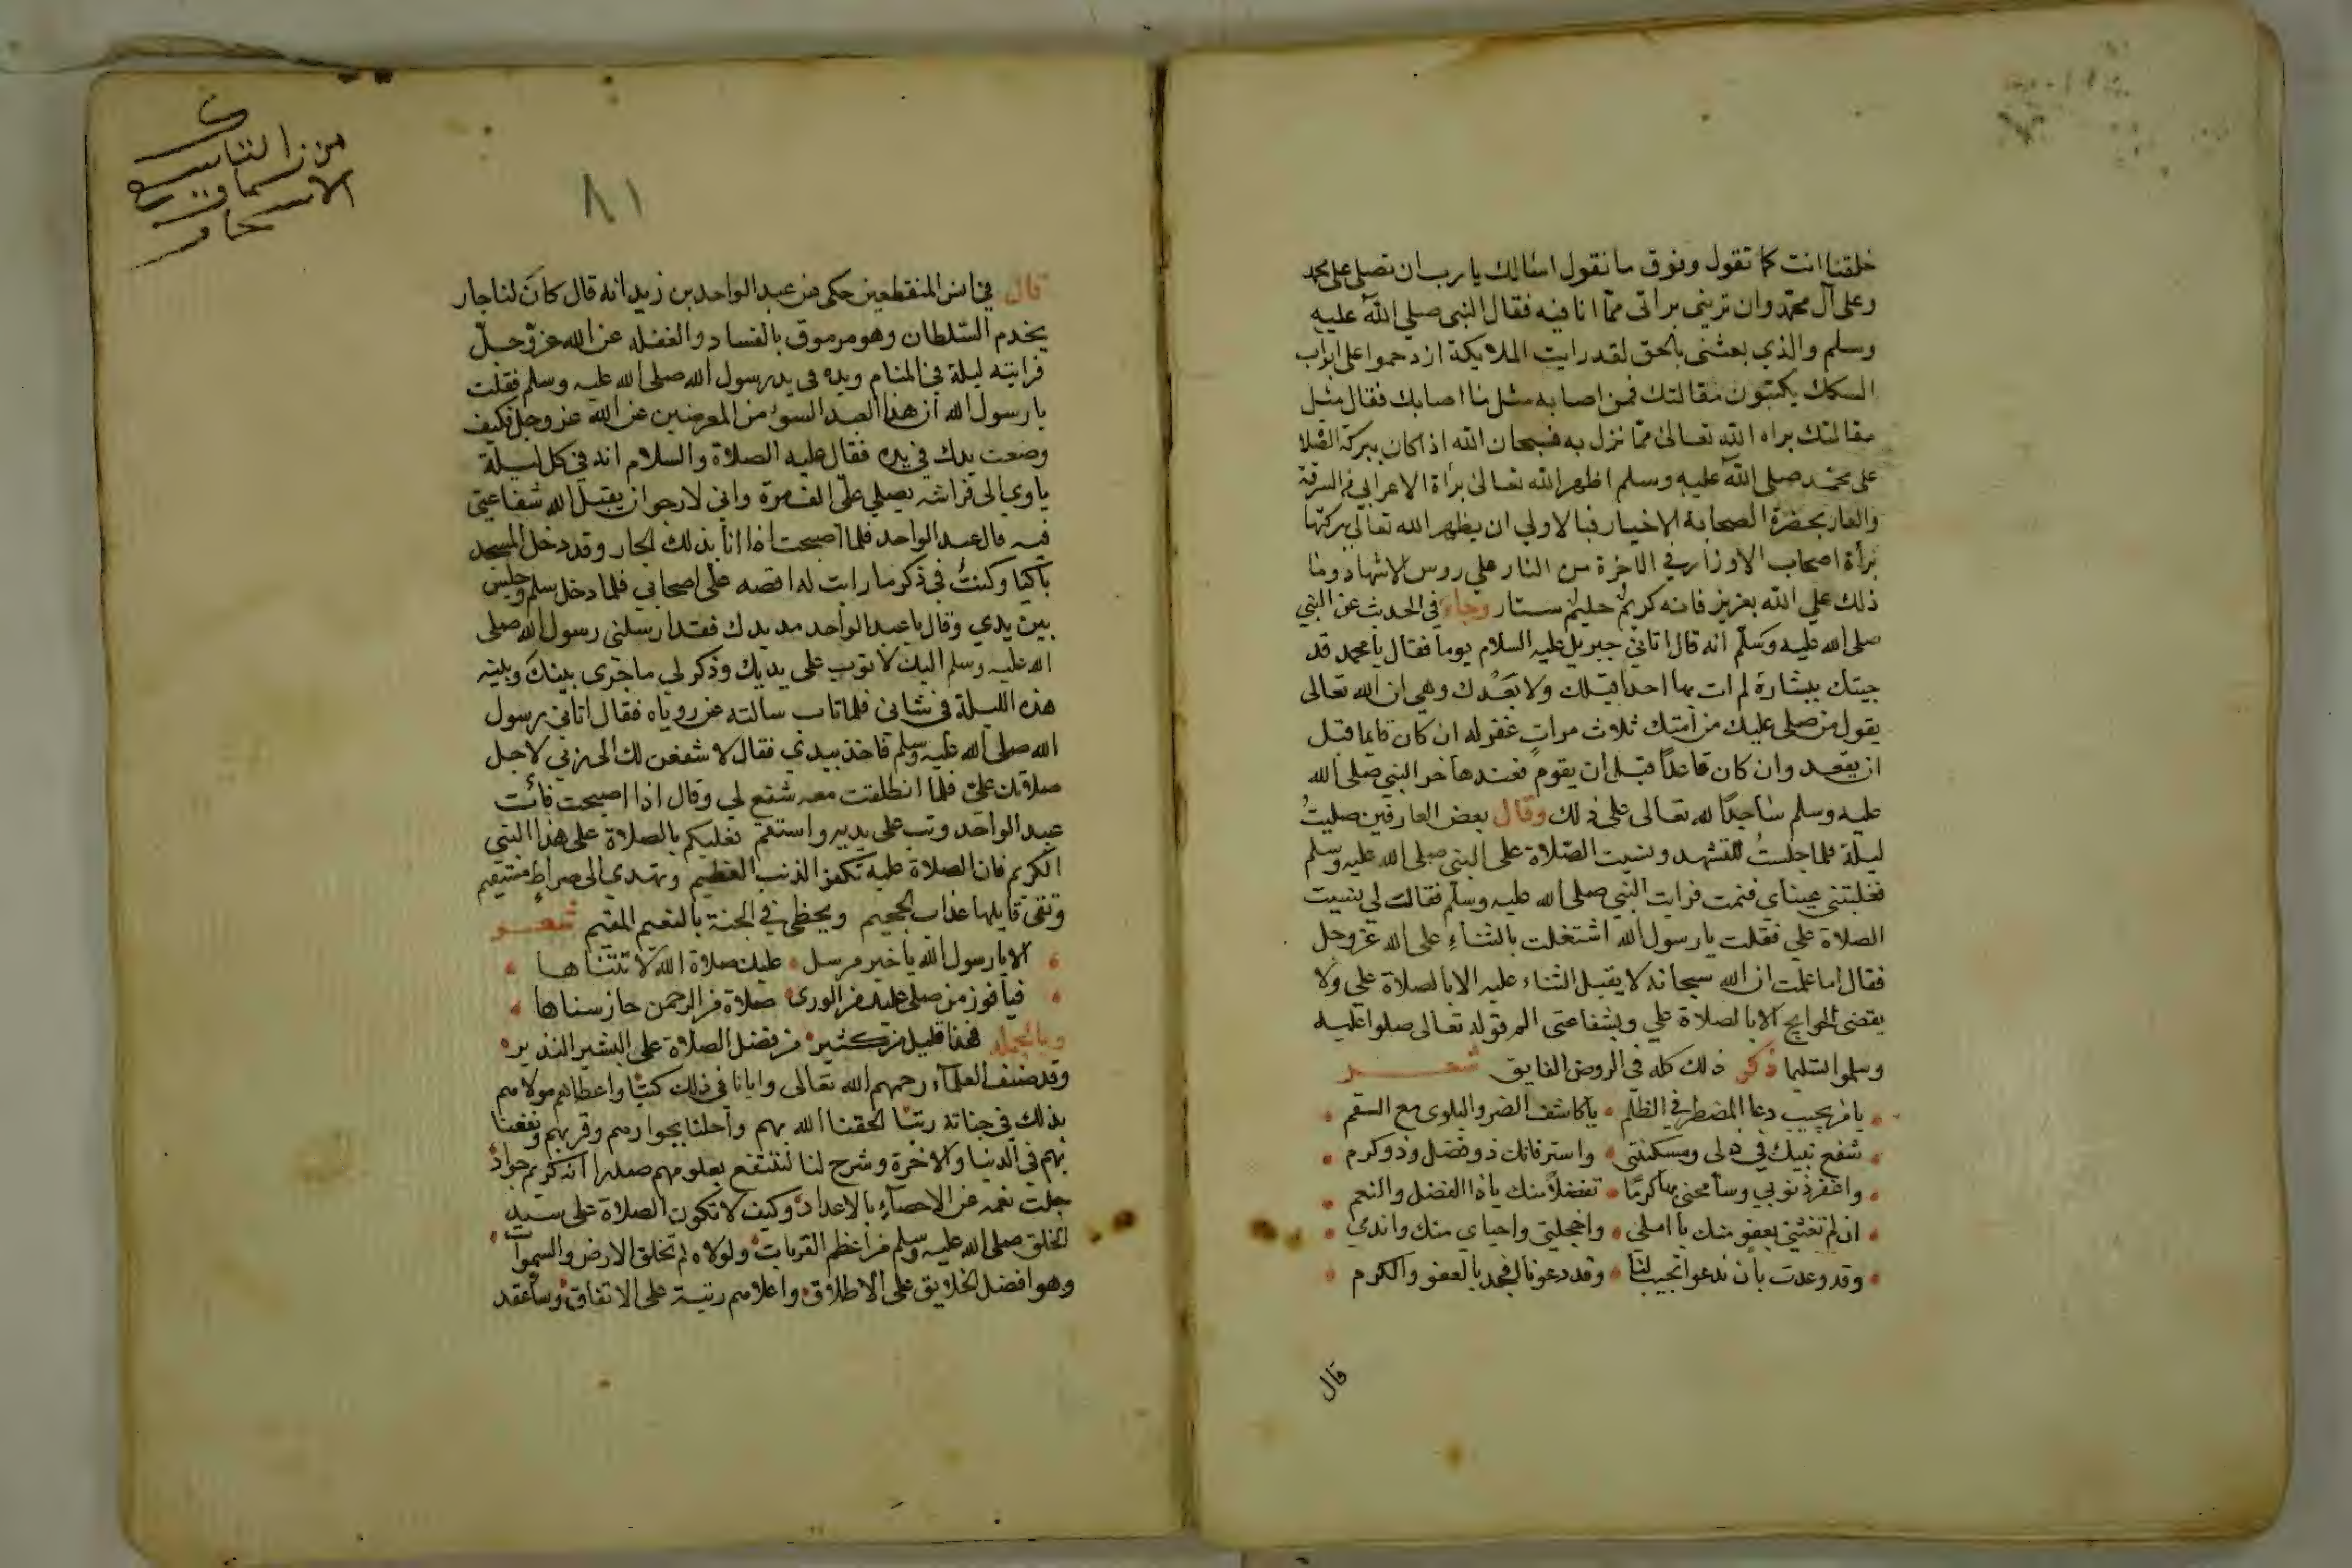 خلقنا انت كما تقول وفوق ما نقول اسالك يا رب ان تصلي على محمد
وعلى آل محمد وان تريني براتي مما انا فيه فقال النبي صلى الله عليه
وسلم والذي بعثني بالحق لقد رايت الملايكة ازدحموا على ابواب
السكك يكتبون مقالتك فمن اصابه مثل ما اصابك فقال مثل
مقالتك براه الله تعالى مما نزل به فسبحان الله اذا كان ببركة الصلا
على محمد صلى الله عليه وسلم اظهر الله تعالى برأة الاعرابي من السرقة
والعار بحضرة الصحابة الاخيار فبالاولي ان يظهر الله تعالى ببركتها
برأة اصحاب الاوزار في الاخرة من النار علي روس الاشهاد وما
ذلك علي الله بعزيز فانه كريم حليم ستار وجاء في الحديث عن النبي
صلى الله عليه وسلم انه قال اتاني جبريل عليه السلام يوما فقال يا محمد قد
جيتك ببشارة لم ات بها احدا قبلك ولا بعدك وهي ان الله تعالى
يقول من صلى عليك من امتك ثلاث مرات غفر له ان كان قايما قبل
ان يقعد وان كان قاعدا قبل ان يقوم فعندها خر النبي صلى الله
عليه وسلم ساجدا لله تعالى على ذلك وقال بعض العارفين صليت
ليلة فلما جلست للتشهد ونسيت الصلاة على النبي صلى الله عليه وسلم
فغلبتني عيناي فنمت فرايت النبي صلى الله عليه وسلم فقال لي نسيت
الصلاة علي فقلت يا رسول الله اشتغلت بالثناء على الله عز وجل
فقال اما علمت ان الله سبحانه لا يقبل الثناء عليه الا بالصلاة علي ولا
يقضى الحوايج الا بالصلاة علي وبشفاعتي الم قوله تعالى صلوا عليه
وسلموا تسليما ذكر ذلك كله في الروض الفايق شعر
يا من يجيب دعا المضطر في الظلم • يا كاشف الضر والبلوى مع السقم
شفع نبيك في ذلي ومسكنتي • واستر فانك ذو فضل وذو كرم
واغفر ذنوبي وسامحني بها كرما • تفضلا منك يا ذا الفضل والنعم
ان لم تغثني بعفو منك يا املي • واخجلتي واحياي منك واندمي
وقد وعدت بان ندعوا تجيب لنا • وقد دعونا فجد بالعفو والكرم
قال
٨١
قال في انس المنقطعين حكي عن عبد الواحد بن زيد انه قال كان لنا جار
يخدم السلطان وهو مرموق بالفساد والغفله عن الله عز وجل
فرايته ليلة في المنام ويده في يد رسول الله صلى الله عليه وسلم فقلت
يا رسول الله ان هذا العبد السوء من المعرضين عن الله عز وجل فكيف
وضعت يدك في يده فقال عليه الصلاة والسلام انه في كل ليلة
ياوي الى فراشه يصلي علي الف مرة واني لارجوا ان يقبل الله شفاعتي
فيه قال عبد الواحد فلما اصبحت اذا انا بذلك الجار وقد دخل المسجد
باكيا وكنت في ذكر ما رايت له اقصه على اصحابي فلما دخل سلم وجلس
بين يدي وقال يا عبد الواحد مد يدك فقد ارسلني رسول الله صلى
الله عليه وسلم اليك لاتوب على يديك وذكر لي ما جرى بينك وبينه
هذه الليلة في شاني فلما تاب سالته عن روياه فقال اتاني رسول
الله صلى الله عليه وسلم فاخذ بيدي فقال لاشفعن لك الى ربي لاجل
صلاتك علي فلما انطلقت معه شفع لي وقال اذا اصبحت فائت
عبد الواحد وتب على يديه واستقم فعليكم بالصلاة على هذا النبي
الكريم فان الصلاة عليه تكفر الذنب العظيم وتهدي الى صراط مستقيم
وتقى قايلها عذاب الجحيم ويحظى في الجنة بالنعيم المقيم شعر
الا يا رسول الله يا خير مرسل • عليك صلاة الله لا تتناها
فيا فوز من صلى عليك من الورى • صلاة من الرحمن حاز سناها
وبالجمله فهذا قليل من كثير من فضل الصلاة على البشير النذير
وقد صنف العلماء رحمهم الله تعالى وايانا في ذلك كتبا واعطاهم مولاهم
بذلك في جناته رتبا لحقنا الله بهم واحلنا بجوارهم وقربهم ونفعنا
بهم في الدنيا والاخرة وشرح لنا لننتفع بعلومهم صدرا انه كريم جواد
جلت نعمه عن الاحصاء بالاعداد وكيف لا تكون الصلاة على سيد
الخلق صلى الله عليه وسلم من اعظم القربات ولولاه لم تخلق الارض والسموات
وهو افضل الخلايق على الاطلاق واعلاهم رتبة على الاتفاق وساعقد